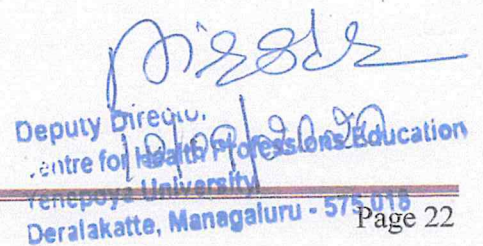 Deputy Director,
Centre for Health Professions Education
Yenepoya University
Deralakatte, Mangaluru - 575 018
Page 22